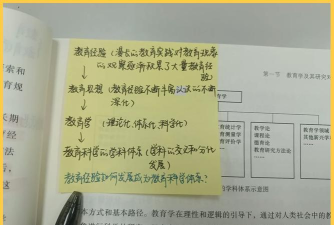 教育经验(漫长的教育实践对教育现象
的观察逐渐积累了大量教育经
验)
教育思想(教育经验不断丰富认识的不断
深化)
教育学(理论化、体系化、科学化)
教育科学的学科体系(学科的交叉和分化
发展)
教育经验如何发展成为教育科学体系?
第一节 教育学及其研究对
索和
育规
长期
育经
方法
教育统计学
教育测量学
教育评价学
教学论
课程论
德育论
教育研究方法论
教育学领域
其他新兴学科
的学科体系示意图
本方式和基本路径。教育学在理性和逻辑的引导下,通过对人类社会中的教